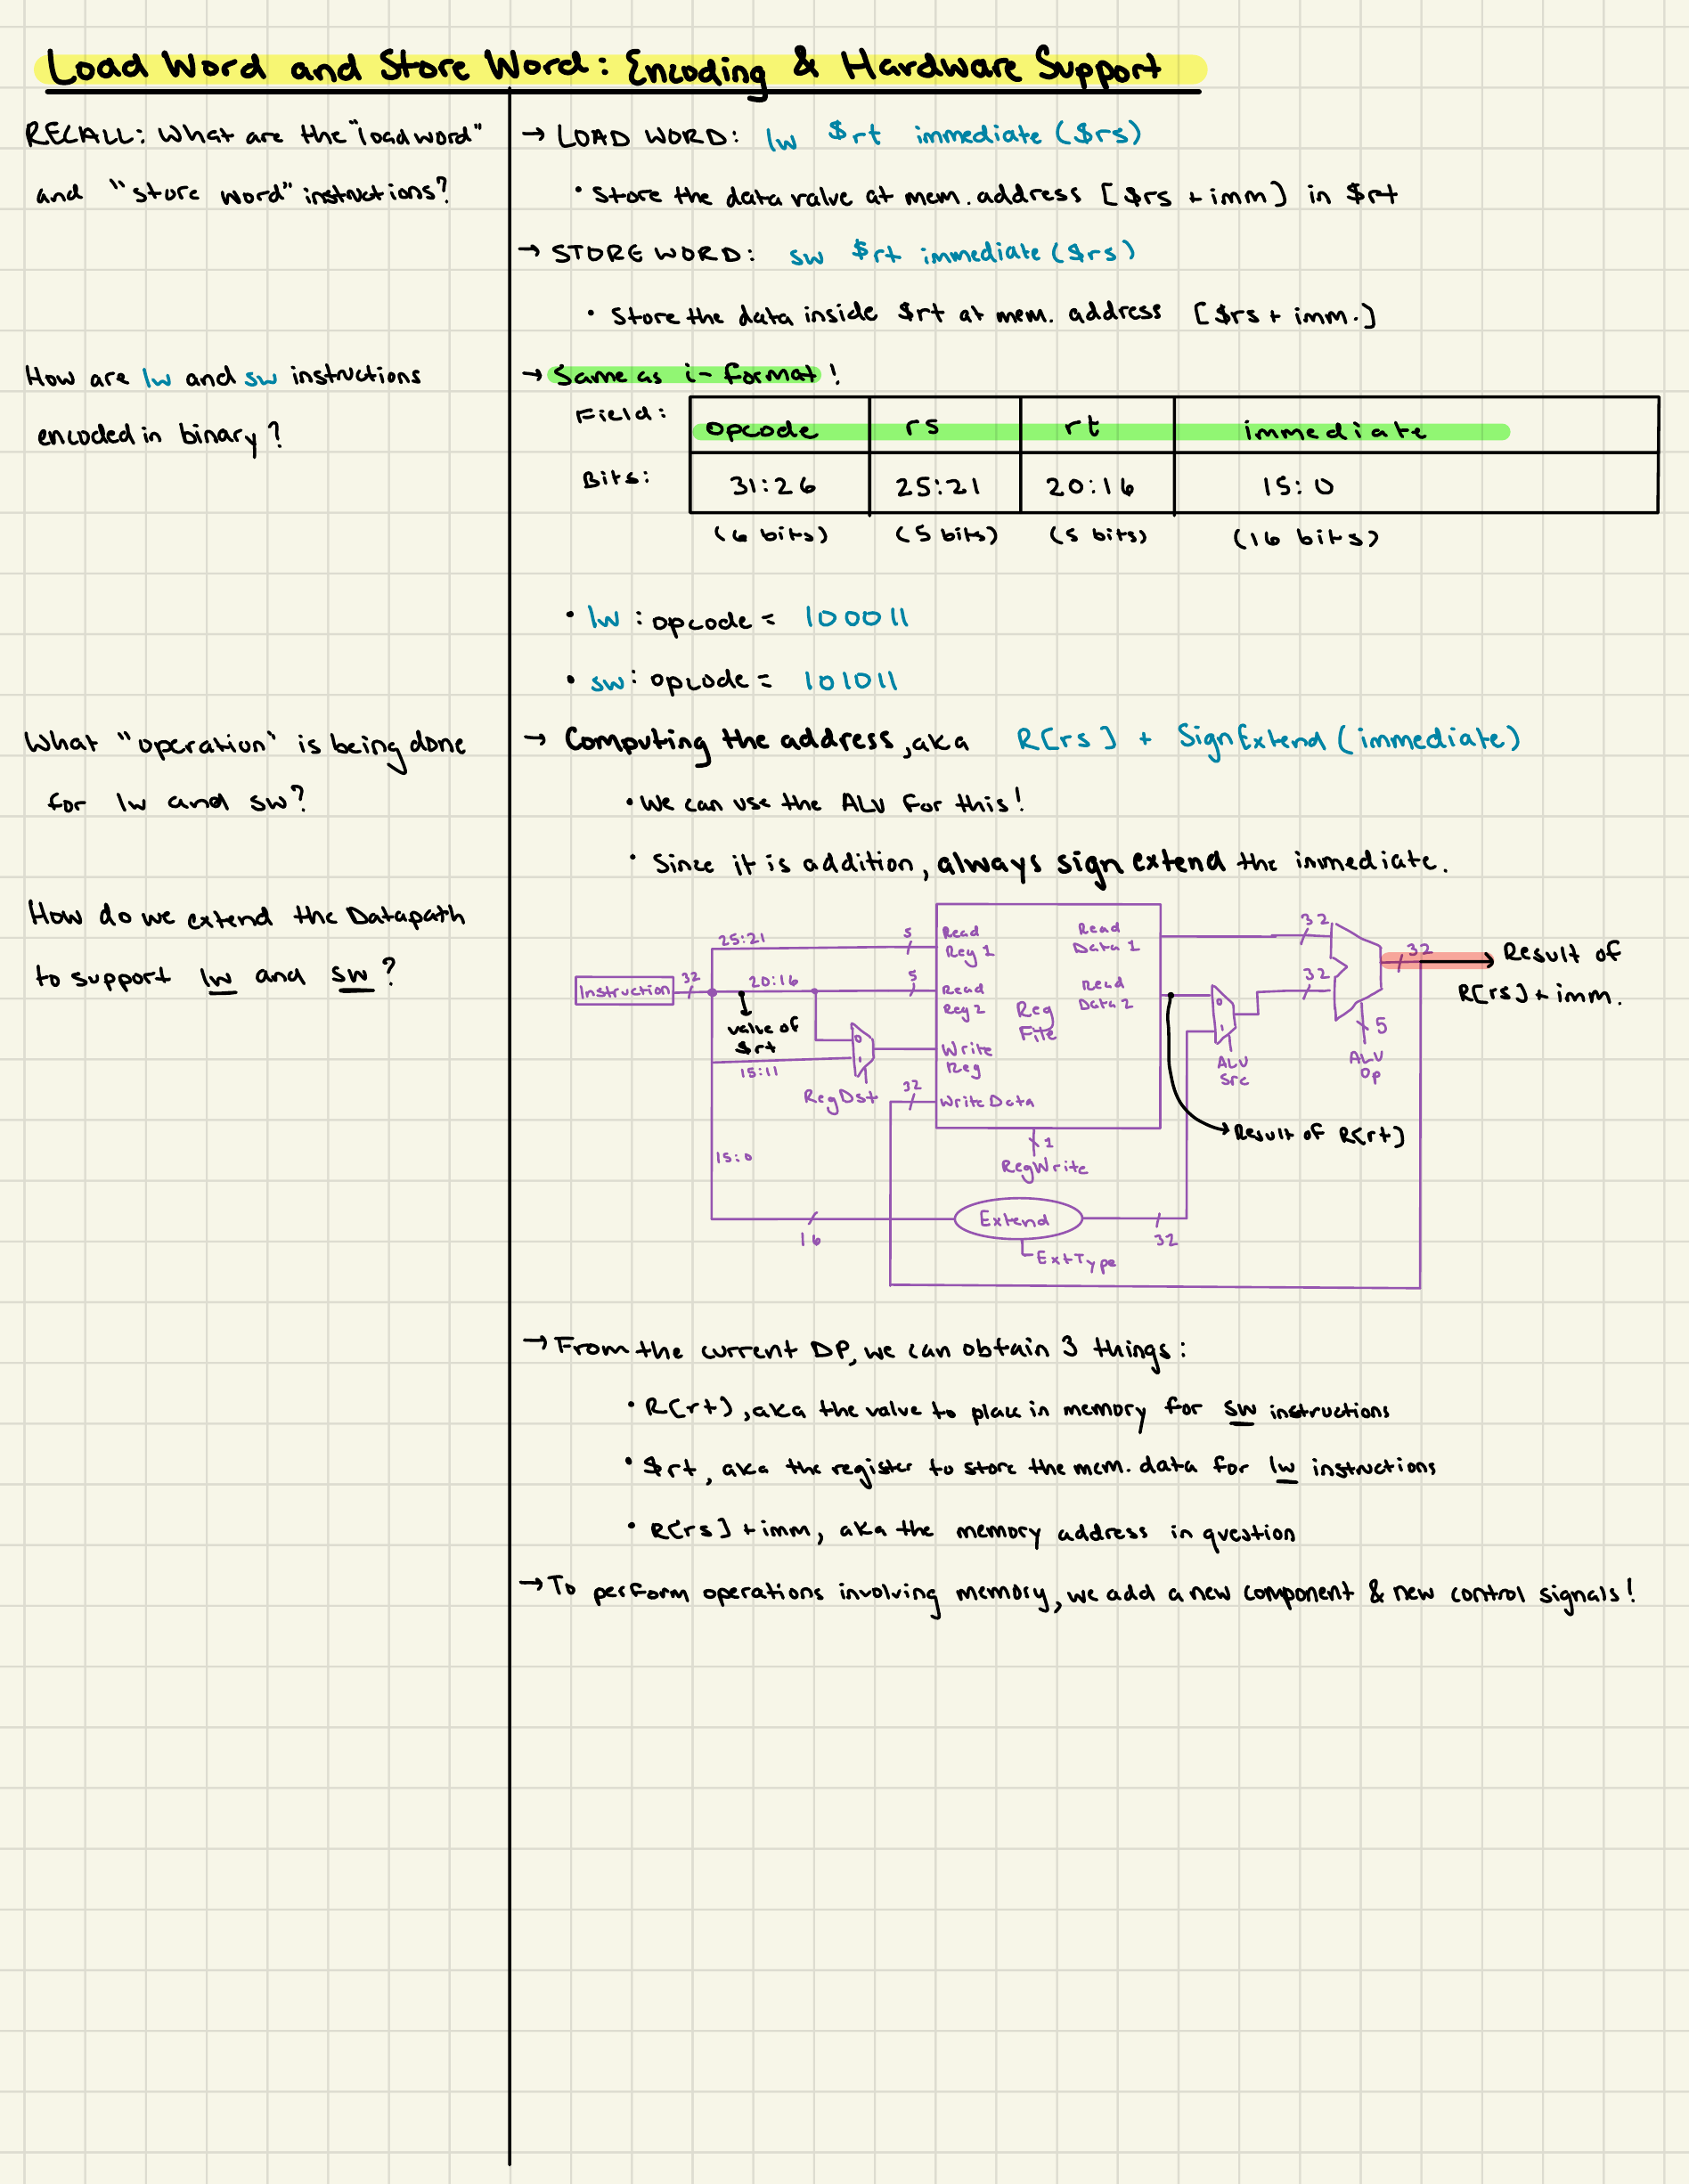 Load Word and Store Word: Encoding & Hardware Support
RECALL: What are the "load word"
and "store word" instructions?
→ LOAD WORD: lw $rt immediate ($rs)
• Store the data value at mem. address [$rs + imm] in $rt
→ STORE WORD: sw $rt immediate ($rs)
• Store the data inside $rt at mem. address [$rs + imm.]
How are lw and sw instructions
encoded in binary?
→ Same as i-format!
Field: opcode rs rt immediate
Bits: 31:26 25:21 20:16 15:0
(6 bits) (5 bits) (5 bits) (16 bits)
• lw: opcode = 100011
• sw: opcode = 101011
What "operation" is being done
for lw and sw?
→ Computing the address, aka R[rs] + SignExtend (immediate)
• We can use the ALU for this!
• Since it is addition, always sign extend the immediate.
How do we extend the Datapath
to support lw and sw?
Instruction
32
25:21
5
20:16
5
value of
$rt
15:11
0
1
RegDst
32
15:0
16
Read
Reg 1
Read
Reg 2
Write
Reg
Write Data
Reg
File
Read
Data 1
Read
Data 2
1
RegWrite
Extend
ExtType
32
0
1
ALU
Src
32
32
5
ALU
Op
32
Result of
R[rs] + imm.
Result of R[rt]
→ From the current DP, we can obtain 3 things:
• R[rt], aka the value to place in memory for sw instructions
• $rt, aka the register to store the mem. data for lw instructions
• R[rs] + imm, aka the memory address in question
→ To perform operations involving memory, we add a new component & new control signals!